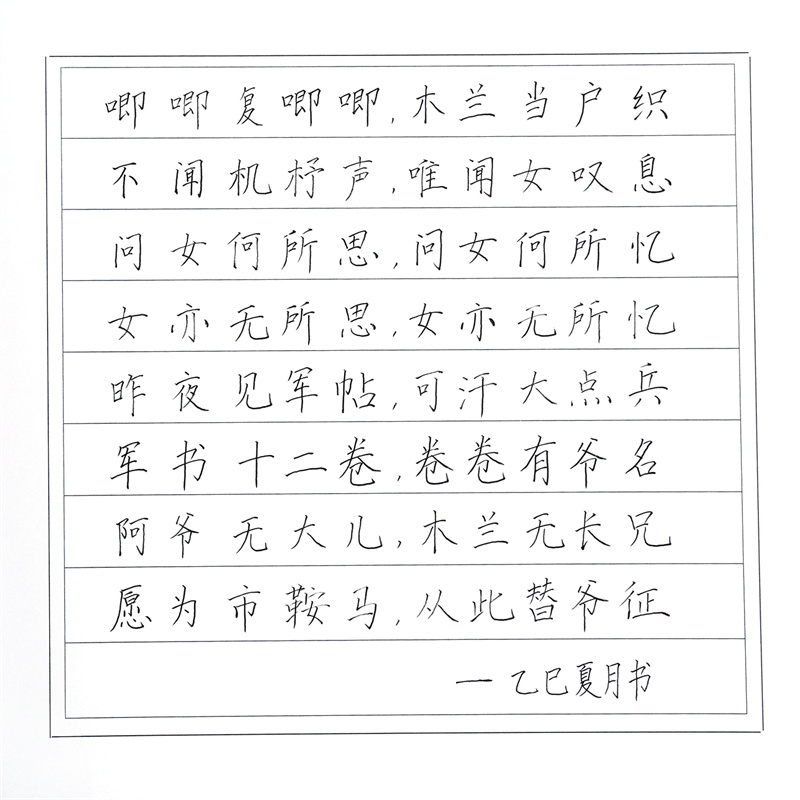 唧唧复唧唧,木兰当户织
不闻机杼声,唯闻女叹息
问女何所思,问女何所忆
女亦无所思,女亦无所忆
昨夜见军帖,可汗大点兵
军书十二卷,卷卷有爷名
阿爷无大儿,木兰无长兄
愿为市鞍马,从此替爷征
— 乙巳夏月书